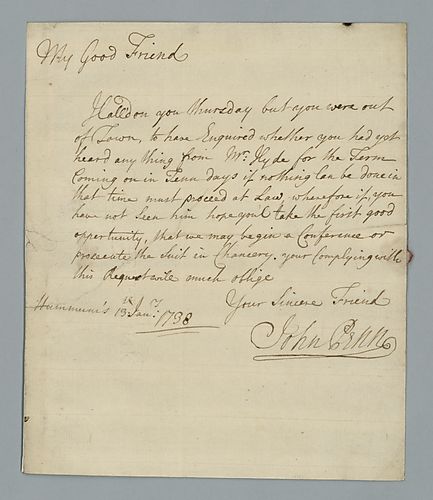 My Good Friend
I Called on you Thursday but you were out
of Town, to have Enquired whether you had yet
heard any thing from Mr. Hyde for the Term
Coming on in Tenn days if nothing Can be done in
that time must proceed at Law, wherefore if you
have not seen him hope youl take the first good
oppertunity, that we may begin a Conference or
prosecute the Suit in Chancery. your Complying with
this Request wile much oblige
Your Sincere Friend
Hummum's 13 Jan:ry 1738
John Penn